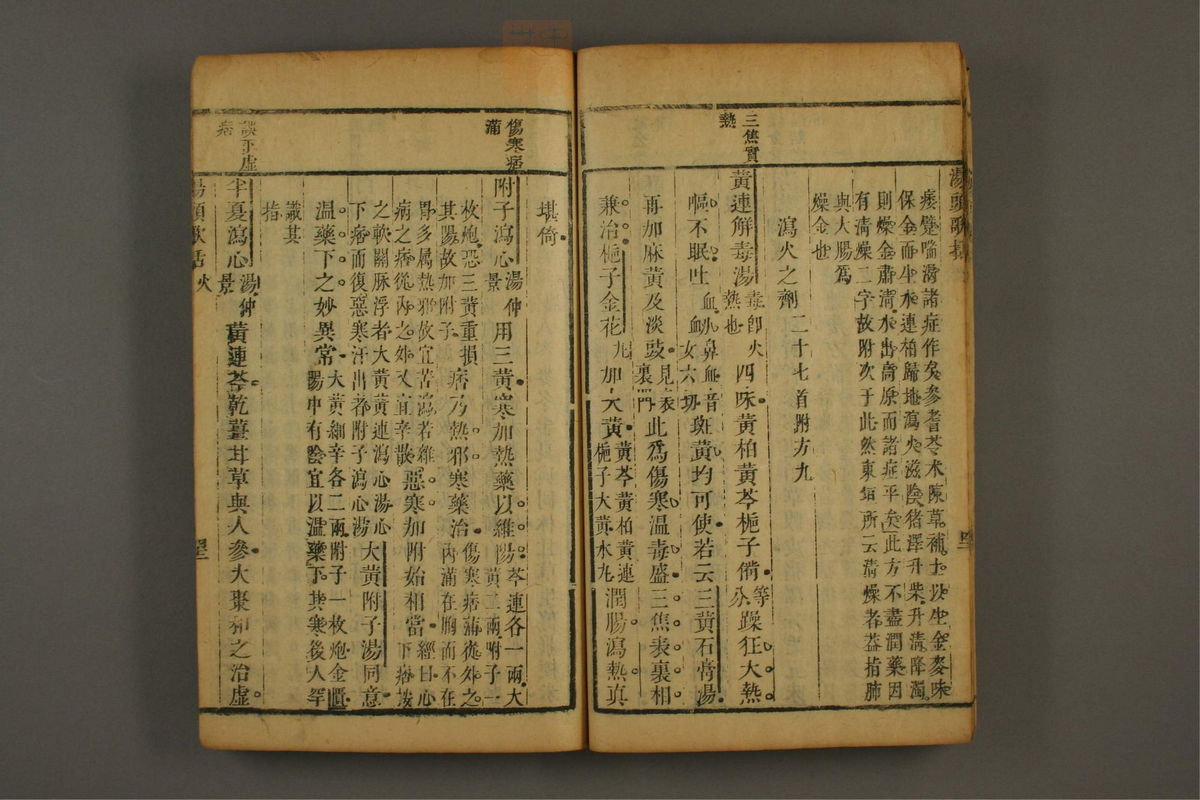 湯頭歌括
痿躄喘瀉諸症作矣參耆苓朮陳草補土以生金麥味
保金而生水連柏歸地瀉火滋陰猪澤升柴升清降濁
則燥金肅清水出高原而諸症平矣此方不盡潤藥因
有清燥二字故附次于此然東垣所云清燥者葢指肺
與大腸爲
燥金也
瀉火之劑 二十七首附方九
三焦實
熱
黃連解毒湯毒即火
熱也四味黃柏黃芩梔子備等
分躁狂大熱
嘔不眠吐血衂鼻血音
衂女六切斑黃均可使若云三黃石膏湯
再加麻黃及淡豉見表
裏門此爲傷寒溫毒盛三焦表裏相
兼治梔子金花丸加大黃黃芩黃柏黃連
梔子大黃水丸潤腸瀉熱真
堪倚
傷寒痞
滿
附子瀉心湯仲
景用三黃寒加熱藥以維陽芩連各一兩大
黃二兩附子一
枚炮恐三黃重損
其陽故加附子痞乃熱邪寒藥治傷寒痞滿從外之
內滿在胸而不在
胃多属熱邪故宜苦瀉若雜
病之痞從內之外又宜辛散惡寒加附始相當經曰心
下痞按
之軟關脉浮者大黃黃連瀉心湯心
下痞而復惡寒汗出者附子瀉心湯大黃附子湯同意
溫藥下之妙異常大黃細辛各二兩附子一枚炮金匱
陽中有陰宜以溫藥下其寒後人罕
識其
指
誤下虛
痞
半夏瀉心湯仲
景黃連芩乾薑甘草與人參大棗和之治虛
湯頭歌括 火